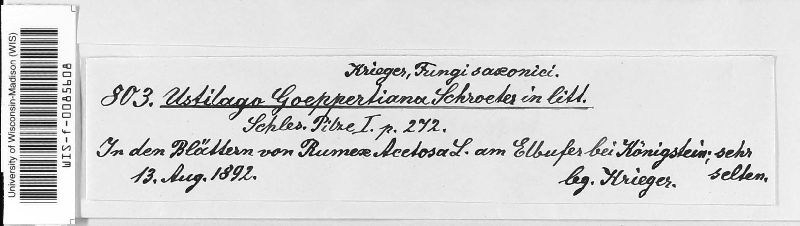 University of Wisconsin-Madison (WIS)
WIS-f-0085608
Krieger, Fungi saxonici.
803. Ustilago Goeppertiana Schroeter in litt.
Schles. Pilze I. p. 272.
In den Blättern von Rumex Acetosa L. am Elbufer bei Königstein; sehr selten.
13. Aug. 1892. leg. Krieger.